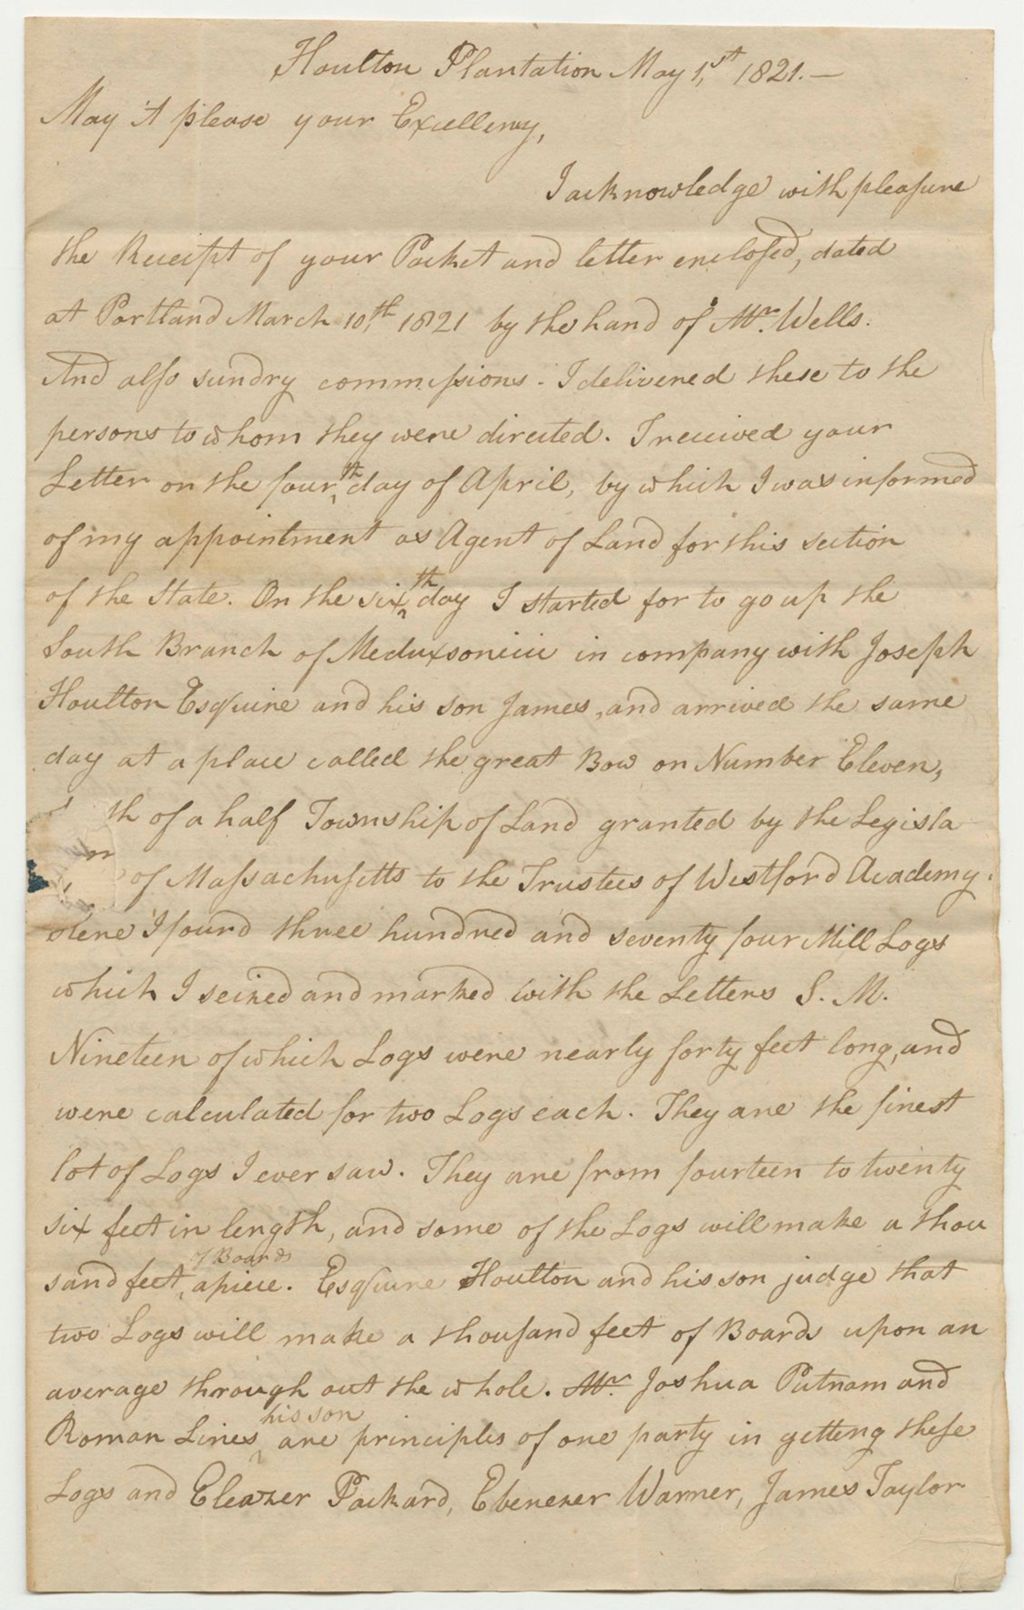 Houlton Plantation May 1,st 1821.—
May it please your Excellency,
I acknowledge with pleasure
the Receipt of your Packet and letter enclosed, dated
at Portland March 10,th 1821 by the hand of Mr. Wells.
And also sundry commissions. I delivered these to the
persons to whom they were directed. I received your
Letter on the four,th day of April, by which I was informed
of my appointment as Agent of Land for this section
of the State. On the six,th day I started for to go up the
South Branch of Meduxsonicic in company with Joseph
Houlton Esquire and his son James, and arrived the same
day at a place called the great Bow on Number Eleven,
th of a half Township of Land granted by the Legisla
of Massachusetts to the Trustees of Westford Academy.
I found three hundred and seventy four Mill Logs
which I seized and marked with the Letters S. M.
Nineteen of which Logs were nearly forty feet long, and
were calculated for two Logs each. They are the finest
lot of Logs I ever saw. They are from fourteen to twenty
six feet in length, and some of the Logs will make a thou
sand feet of Boards apiece. Esquire Houlton and his son judge that
two Logs will make a thousand feet of Boards upon an
average through out the whole. Mr. Joshua Putnam and
Roman Lines his son are principles of one party in getteng these
Logs and Eleazer Packard, Ebenezer Warner, James Taylor